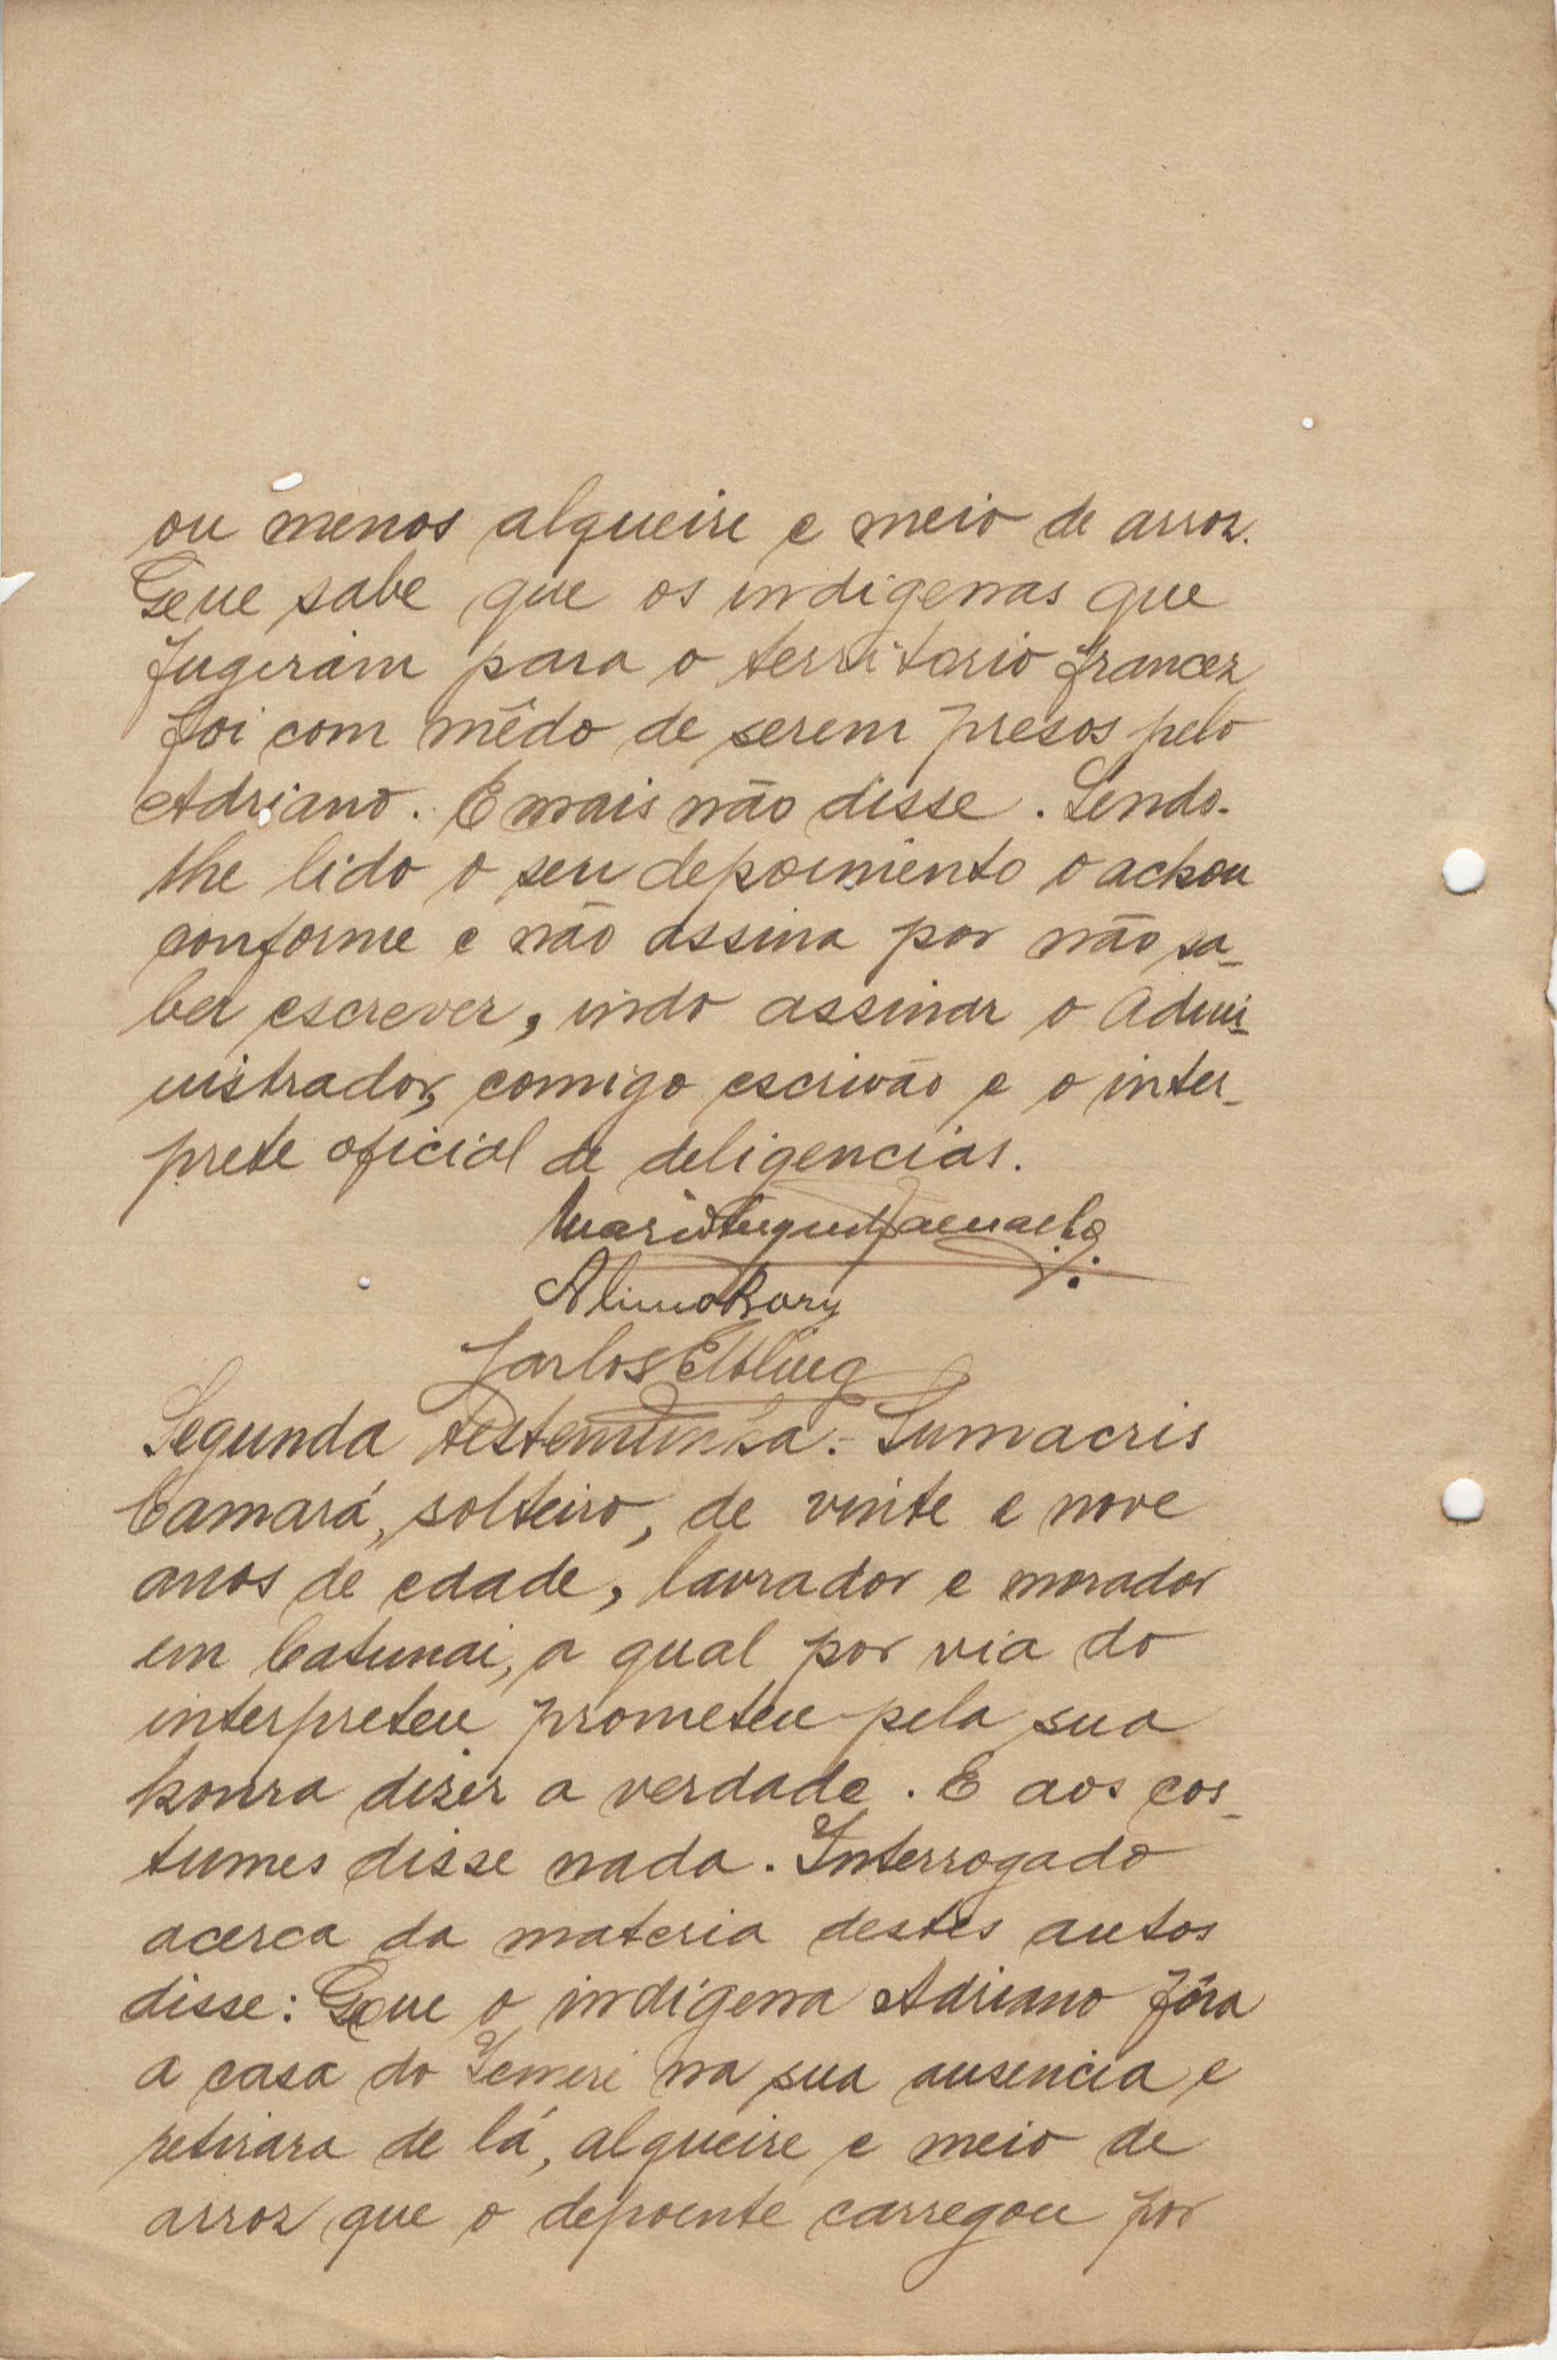 ou menos alqueire e meio de arroz.
Que sabe que os indigenas que
fugeram para o territorio francez
foi com mêdo de serem presos pelo
Adriano. E mais não disse. Sendo-
lhe lido o seu depoimento o achou
conforme e não assina por não sa-
ber escrever, indo assinar o Admi-
nistrador, comigo escrivão e o inter-
prete oficial de deligencias.
Carlos Ebling
Segunda testemunha:- Sumacris
Camará, solteiro, de vinte e nove
anos de edade, lavrador e morador
em Catunai, a qual por via do
interpreteu prometeu pela sua
honra dizer a verdade. E aos cos-
tumes disse nada. Interrogado
acerca da materia destes autos
disse: Que o indígena Adriano fôra
a casa do na sua ausencia e
retirara de lá, alqueire e meio de
arroz que o depoente carregou por